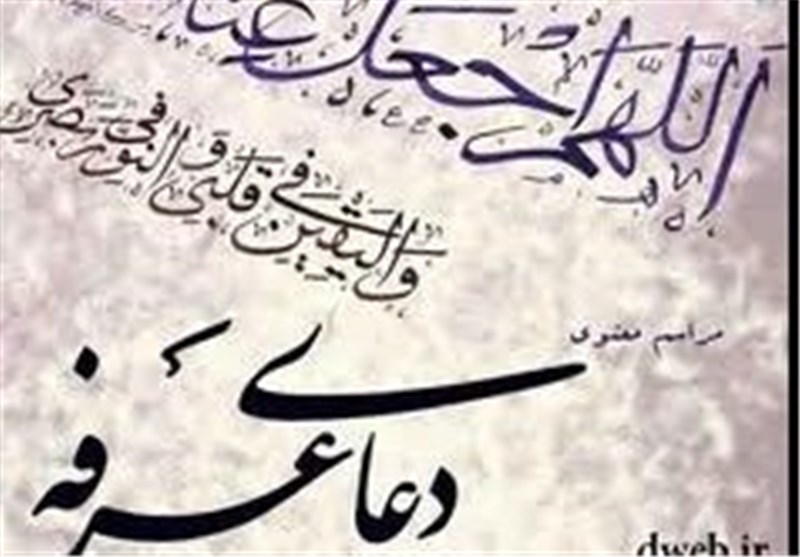 اللّهم اجعل غنا
واليقين في قلبي و النور في بصري
مراسم معنوی
دعای عرفه
dweb.ir